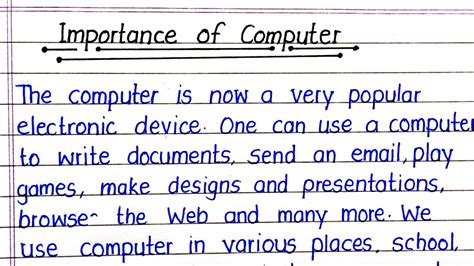 Importance of Computer
The computer is now a very popular
electronic device. One can use a computer
to write documents, send an email, play
games, make designs and presentations,
browse the Web and many more. We
use computer in various places, school,